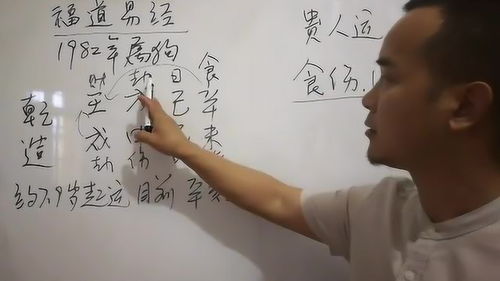 福道易经
1982年属狗
财 劫 日 食
乾 壬 己 辛
造 戌 未
劫 伤
约7.9岁起运 目前 辛
貴人运
食伤.